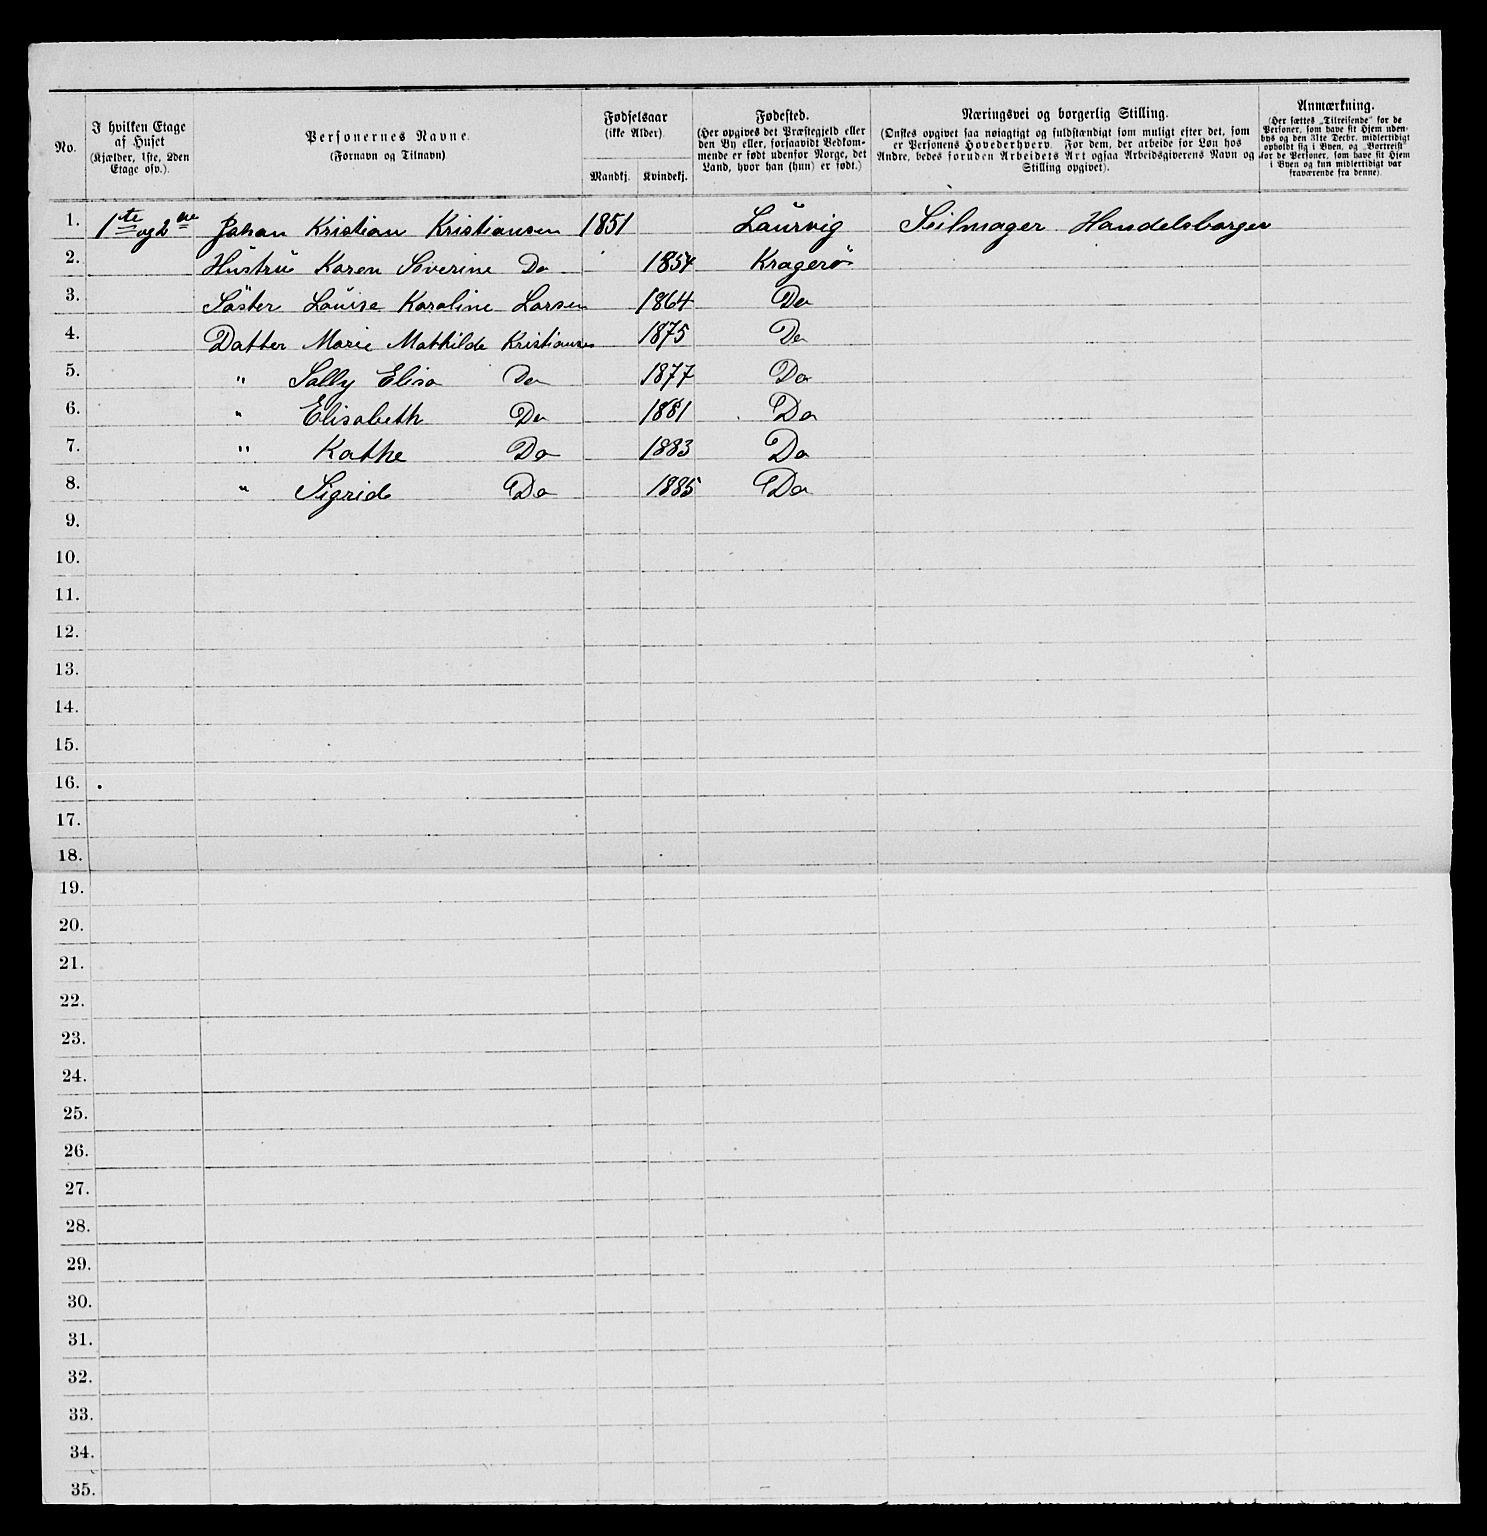 No. I hvilken Etage af Huset (Kjælder, 1ste, 2den Etage osv.). Personernes Navne. (Fornavn og Tilnavn) Fødselsaar (ikke Alder). Mandkj. Kvindekj. Fødested. (Her opgives det Præstegjeld eller den By eller, forsaavidt Vedkommende er født udenfor Norge, det Land, hvor han (hun) er født.) Næringsvei og borgerlig Stilling. (Ønskes opgivet saa nøiagtigt og fuldstændigt som muligt efter det, som er Personens Hovederhverv. For dem, der arbeide for Løn hos Andre, bedes foruden Arbeidets Art ogsaa Arbeidsgiverens Navn og Stilling opgivet). Anmærkning. (Her sættes „Tilreisende" for de Personer, som have sit Hjem udenbys og den 31te Decbr. midlertidigt opholdt sig i Byen, og „Bortreist" for de Personer, som have sit Hjem i Byen og kun midlertidigt var fraværende fra denne).
1. 1te og 2en Johan Kristian Kristiansen 1851 Laurvig Seilmager Handelsborger
2. Hustru Karen Severine Do 1854 Kragerö
3. Söster Louise Karoline Larsen 1864 Do
4. Datter Marie Mathilde Kristiansen 1875 Do
5. " Sally Elisa Do 1877 Do
6. " Elisabeth Do 1881 Do
7. " Kathe Do 1883 Do
8. " Sigrid Do 1885 Do
9.
10.
11.
12.
13.
14.
15.
16.
17.
18.
19.
20.
21.
22.
23.
24.
25.
26.
27.
28.
29.
30.
31.
32.
33.
34.
35.